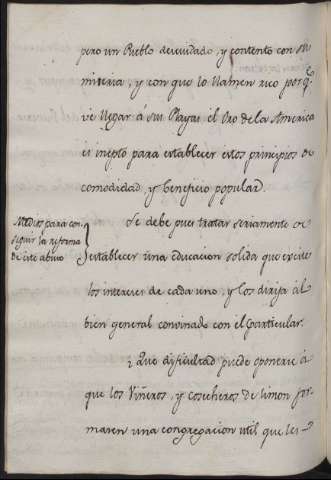 pero un Pueblo descuidado, y contento con su
miseria, y con que lo llamen rico porq.e
vé llegar á sus Playas el Oro de la America
es inepto para establecer estos principios de
comodidad y beneficio popular.
Medios para con
seguir la reforma
de este abuso
Se debe pues tratar seriamente de
establecer una educacion solida que excite
los intereses de cada uno, y los dirija al
bien general convinado con el particular.
¿ Que dificultad puede oponerse á
que los Viñeros, y cosecheros de limon for-
masen una congregacion util que les